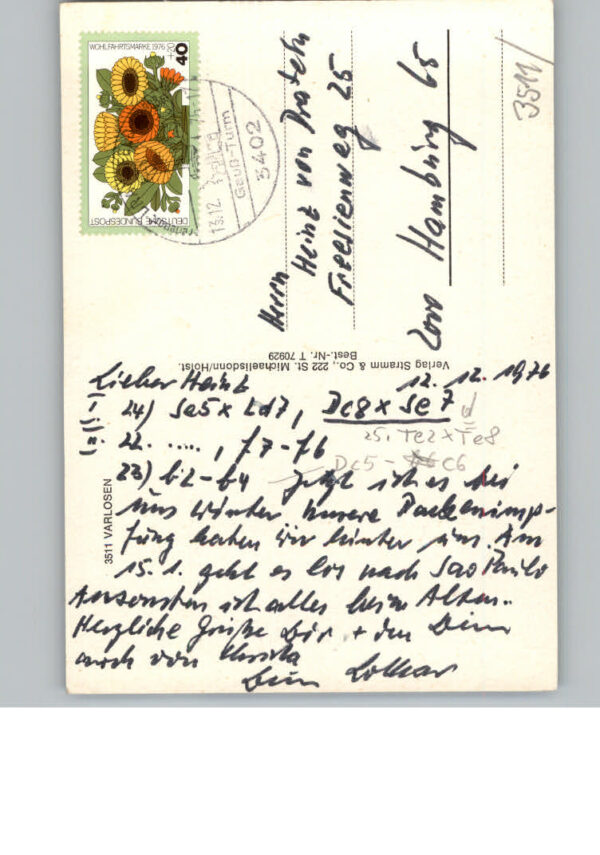 WOHLFAHRTSMARKE 1976
40
+20
DEUTSCHE BUNDESPOST
13.12
Gauß-Turm
3402
3511/
Herrn
Heinz von
25
2000 Hamburg 65
Verlag Stramm & Co., 222 St. Michaelisdonn/Holst.
Best.-Nr. T 70929
3511 VARLOSEN
12. 12. 1976
Lieber Heinz
I. 24) Se5 x Ld7, Dc8 x Se7
25. Te2 x Te8
II. 22. ....., f7-f6
Dc5 - c6
23) b2-b4 Jetzt ist es bei
uns Winter unsere Pockenimp-
fung haben wir hinter uns. Am
15.1. geht es los nach Sao Paulo
Ansonsten ist alles beim Alten..
Herzliche Grüße Dir + den Deinen
auch von
Dein Lothar